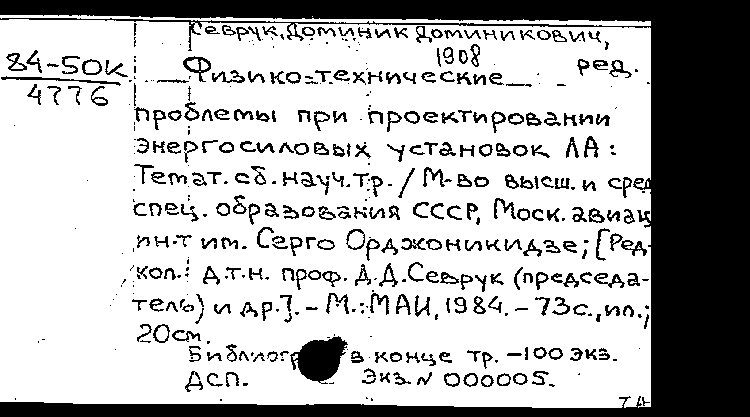 Севрук, Доминик Доминикович,
1908
84-50К
ред.
Физико-технические
4776
проблемы при проектировании
энергосиловых установок ЛА:
Темат. сб. науч. тр. / М-во высш. и сред
спец. образования СССР, Моск. авиац
ин-т им. Серго Орджоникидзе; [Ред-
кол.: д.т.н. проф. Д.Д. Севрук (председа-
тель) и др.]. - М.: МАИ, 1984. - 73с., ил.;
20см.
Библиогр в конце тр. - 100 экз.
ДСП. Экз. N 000005.